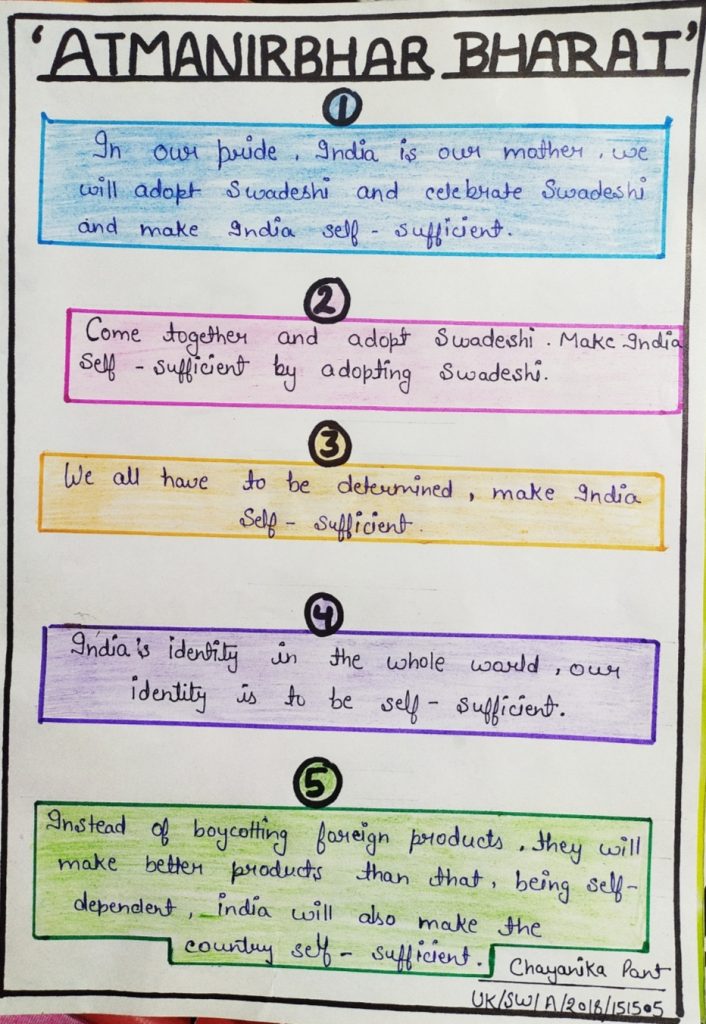 'ATMANIRBHAR BHARAT'
1
In our pride, India is our mother, we
will adopt Swadeshi and celebrate Swadeshi
and make India self - sufficient.
2
Come together and adopt Swadeshi. Make India
Self - sufficient by adopting Swadeshi.
3
We all have to be determined, make India
Self - sufficient.
4
India's identity in the whole world, our
identity is to be self - sufficient.
5
Instead of boycotting foreign products, they will
make better products than that, being self-
dependent, india will also make the
country self - sufficient.
Chayanika Pant
UK/SW/A/2018/151505